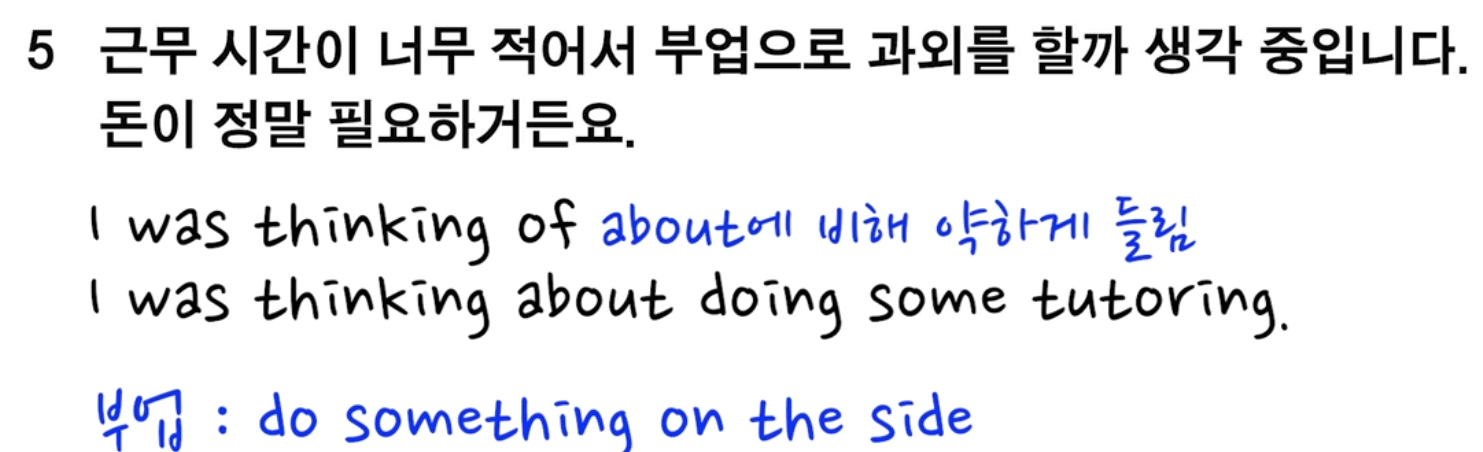 5 근무 시간이 너무 적어서 부업으로 과외를 할까 생각 중입니다.
돈이 정말 필요하거든요.
I was thinking of about에 비해 약하게 들림
I was thinking about doing some tutoring.
부업 : do something on the side